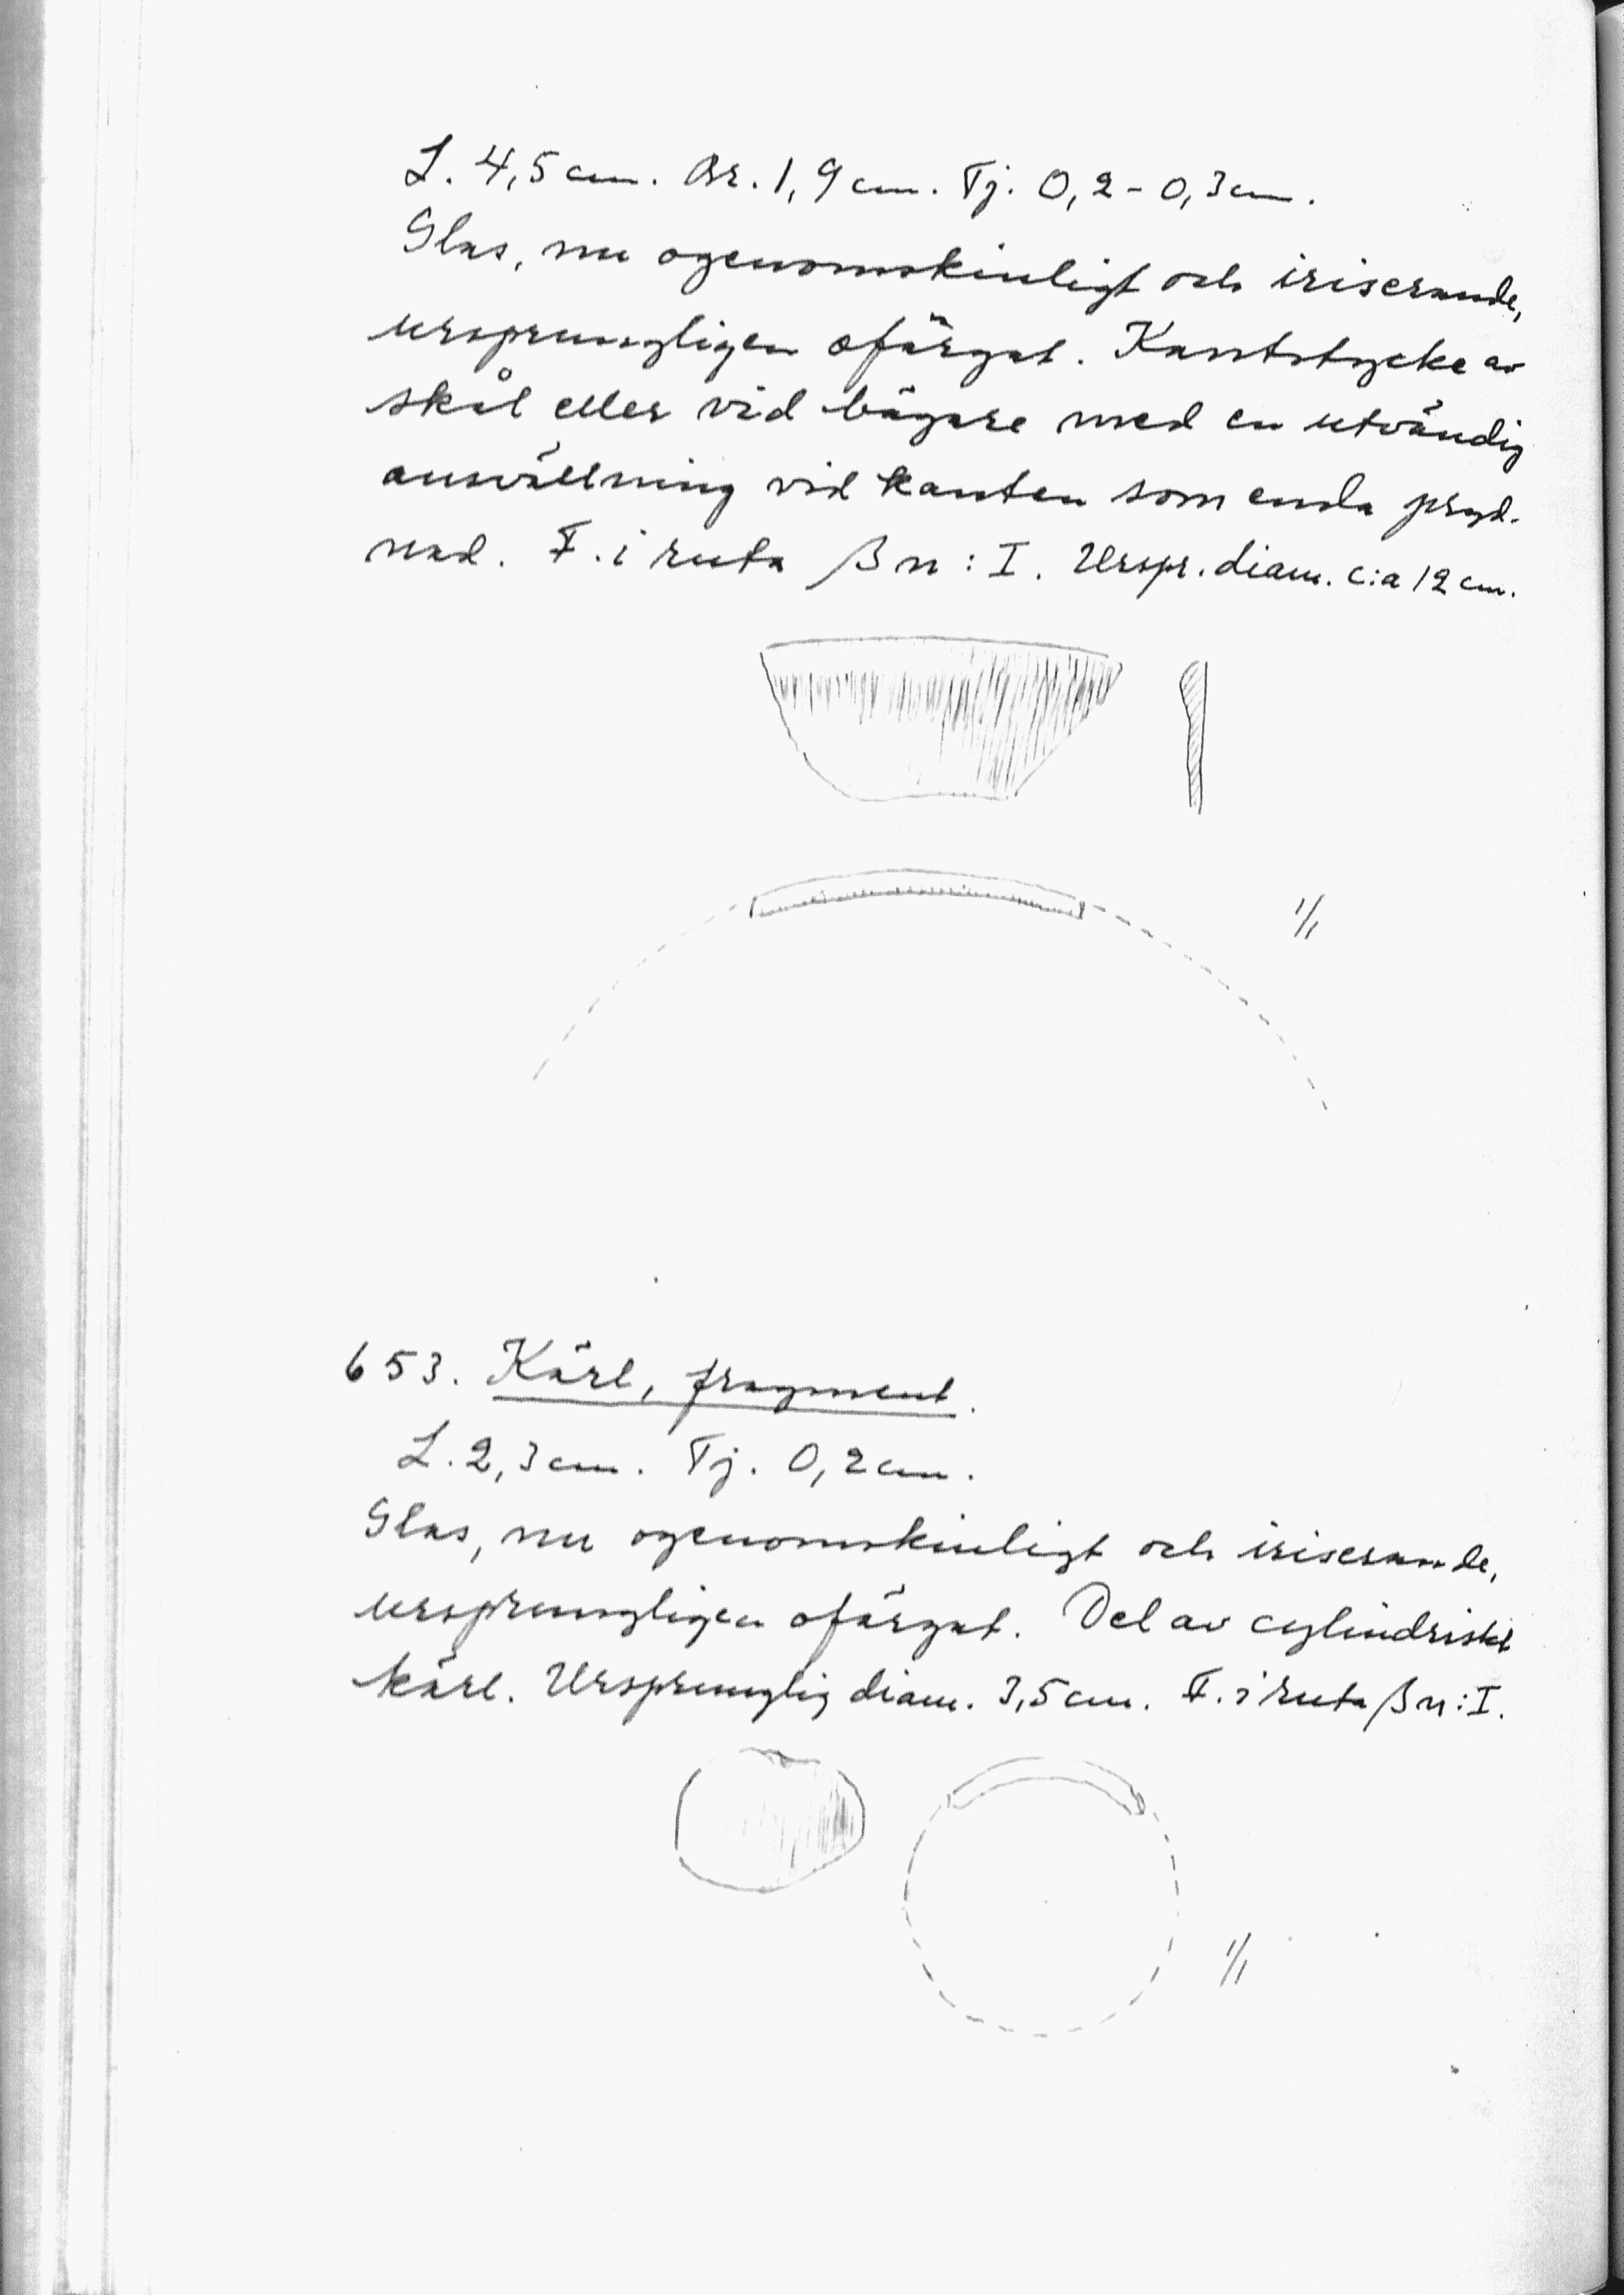 L. 4,5 cm. Br. 1,9 cm. Tj. 0,2-0,3 cm.
Glas, nu ogenomskinligt och iriserande,
ursprungligen ofärgat. Kantstycke av
skål eller vid bägare med en utvändig
ansvällning vid kanten som enda pryd-
nad. F. i ruta β n : I. Urspr. diam. c:a 12 cm.
1/1
653. Kärl, fragment.
L. 2,3 cm. Tj. 0,2 cm.
Glas, nu ogenomskinligt och iriserande,
ursprungligen ofärgat. Del av cylindriskt
kärl. Ursprunglig diam. 3,5 cm. F. i ruta β n : I.
1/1